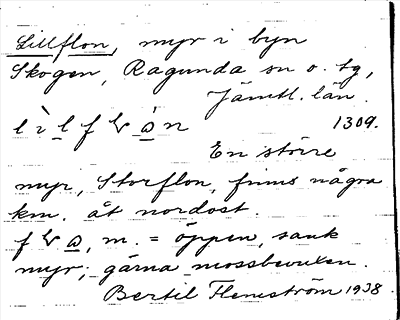 Lillflon, myr i byn
Skogen, Ragunda sn o. tg,
Jämtl. län.
1309.
En större
myr, Storflon, finns några
km. åt nordost.
m. = öppen, sank
myr; gärna mossbevuxen.
Bertil Flemström 1938.